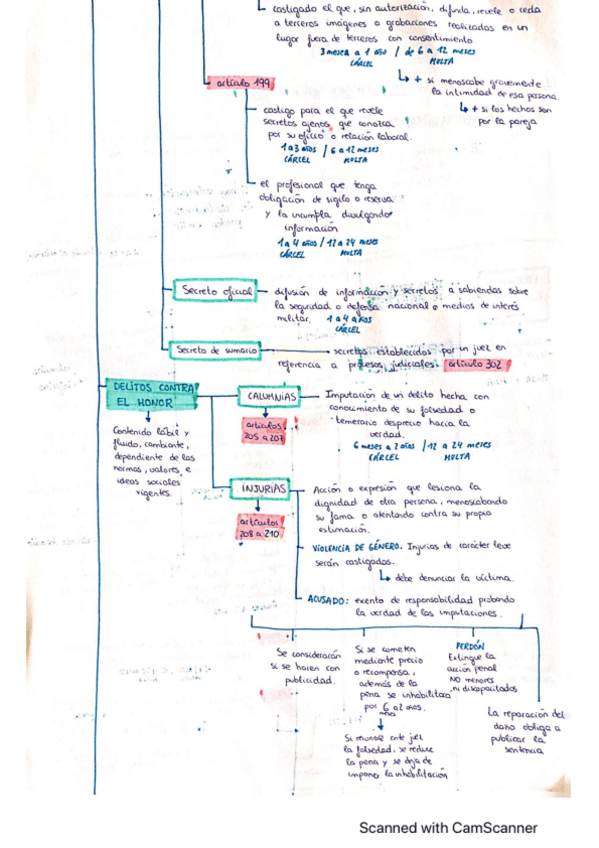 castigado el que, sin autorización, difunda, revele o ceda
a terceros imágenes o grabaciones realizadas en un
lugar fuera de terceros con consentimiento.
3 meses a 1 año / de 6 a 12 meses
CÁRCEL MULTA
↳ + si menoscabe gravemente
la intimidad de esa persona.
↳ + si los hechos son
por la pareja
artículo 199
castigo para el que revele
secretos ajenos, que conozca
por su oficio o relación laboral.
1 a 3 años / 6 a 12 meses
CÁRCEL MULTA
el profesional que tenga
obligación de sigilo o reserva
y la incumpla divulgando
información
1 a 4 años / 12 a 24 meses
CÁRCEL MULTA
Secreto oficial
difusión de información y secretos a sabiendas sobre
la seguridad o defensa nacional o medios de interés
militar. 1 a 4 años
CÁRCEL
Secreto de sumario
secretos establecidos por un juez en
referencia a procesos judiciales. artículo 302
DELITOS CONTRA
EL HONOR
Contenido lábil y
fluido, cambiante,
dependiente de las
normas, valores, e
ideas sociales
vigentes.
CALUMNIAS
artículos
205 a 207
Imputación de un delito hecha con
conocimiento de su falsedad o
temerario desprecio hacia la
verdad.
6 meses a 2 años / 12 a 24 meses
CÁRCEL MULTA
INJURIAS
artículos
208 a 210
Acción o expresión que lesiona la
dignidad de otra persona, menoscabando
su fama o atentando contra su propia
estimación.
VIOLENCIA DE GÉNERO. Injurias de carácter leve
serán castigadas.
↳ debe denunciar la víctima.
ACUSADO: exento de responsabilidad probando
la verdad de las imputaciones.
Se considerarán
si se hacen con
publicidad.
Si se cometen
mediante precio
o recompensa,
además de la
pena se inhabilitará
por 6 meses a 2 años.
Si reconoce ante juez
la falsedad, se reduce
la pena y se deja de
imponer la inhabilitación
PERDÓN
Extingue la
acción penal
NO menores
ni discapacitados
La reparación del
daño obliga a
publicar la
sentencia
Scanned with CamScanner